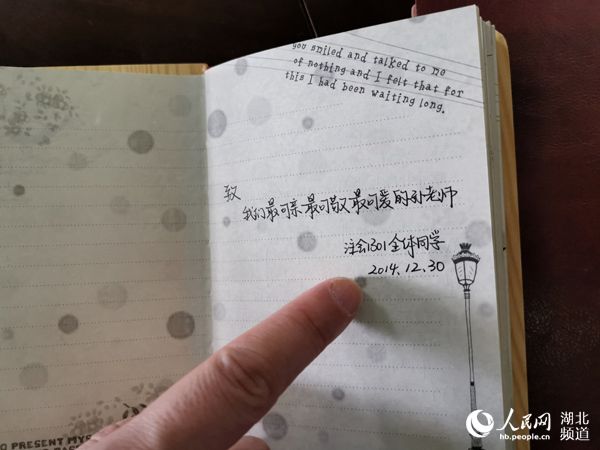 you smiled and talked to me
of nothing and I felt that for
this I had been waiting long.
致
我们最可亲最可敬最可爱的孙老师
注会1301全体同学
2014.12.30
O PRESENT MYS
人民网 湖北频道
hb.people.cn